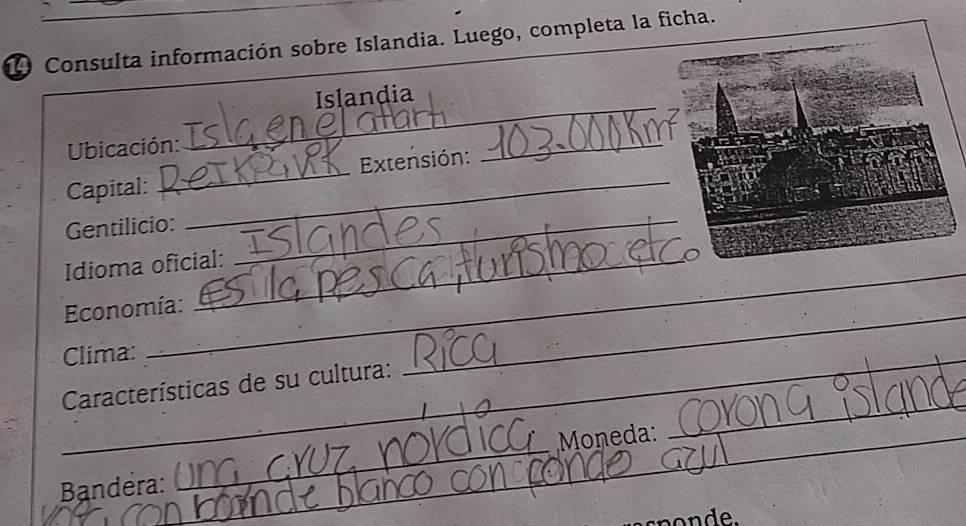 14 Consulta información sobre Islandia. Luego, completa la ficha.
Islandia
Ubicación: Isla en el atlarti
Capital: Reikeavik Extensión: 103.000 Km²
Gentilicio:
Idioma oficial: Islandes
Economía: Es la pesca, turismo etc
Clima:
Características de su cultura: Rica
Moneda: corona islande
Bandera: una cruz nordica
con borde blanco con fondo azul